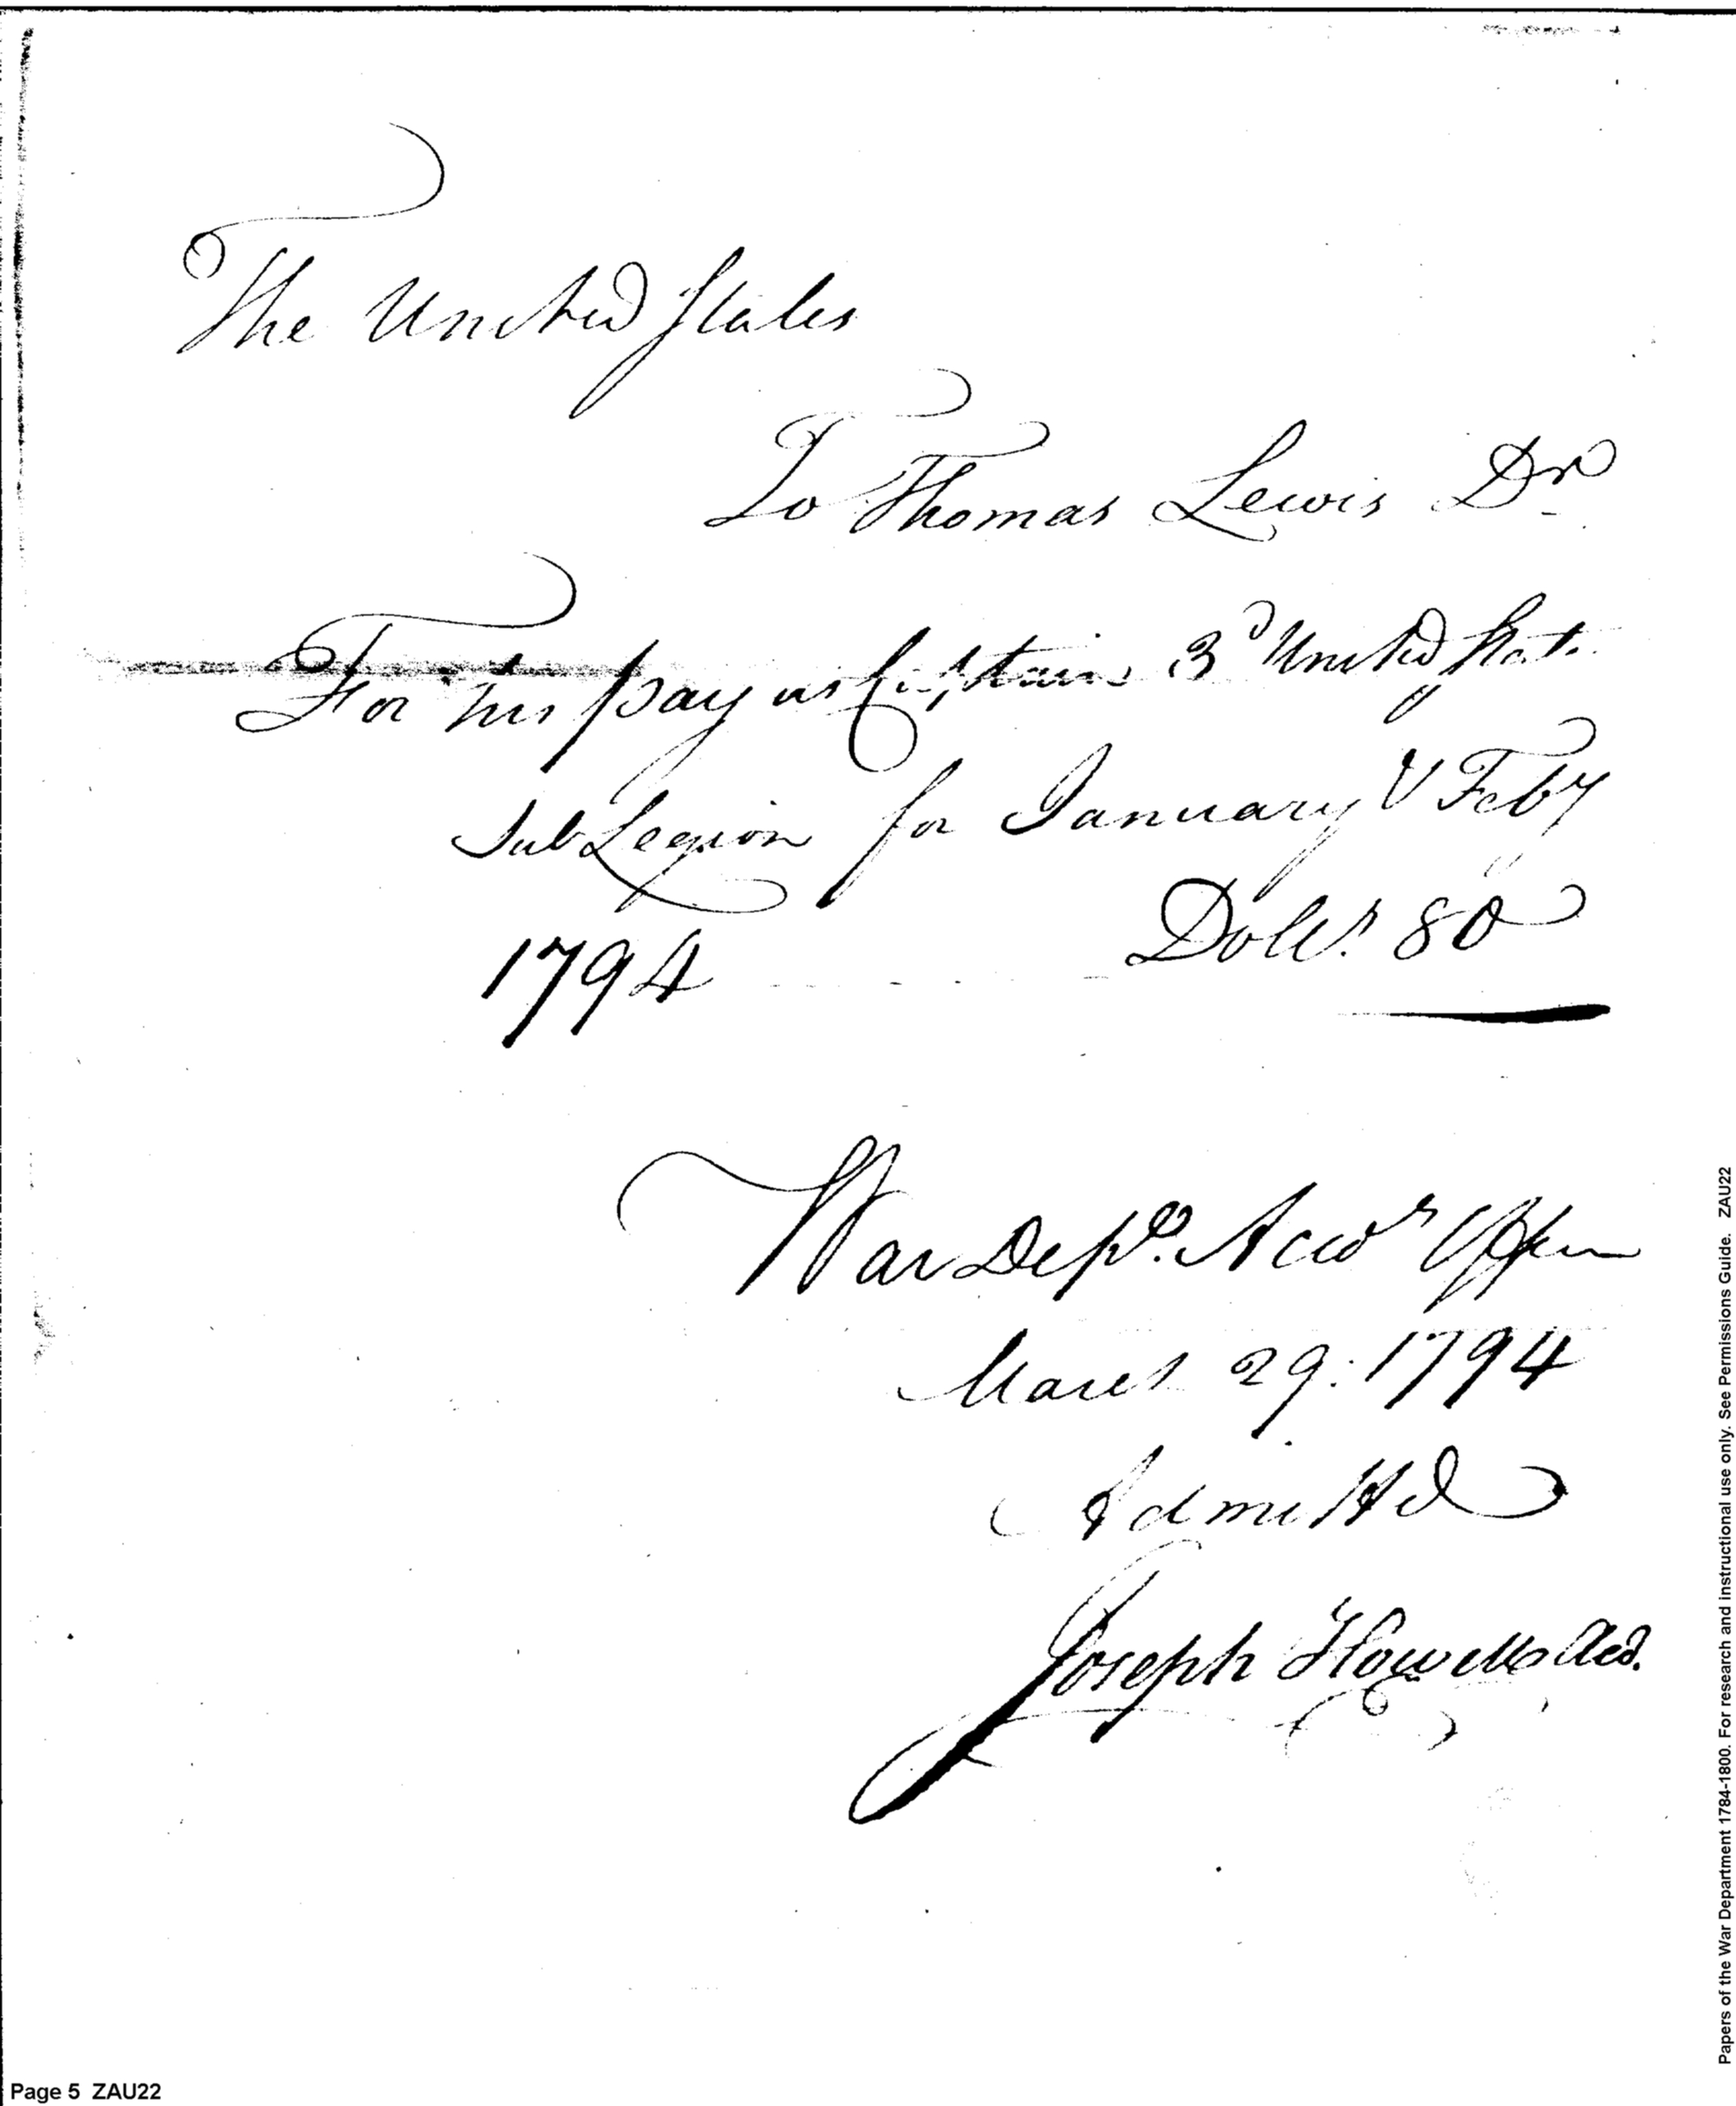 The United States
To Thomas Lewis Dr
For his pay as Captain 3d United State
Sub Legion for January & Feby
1794 - - - - Dolls. 80
War Dept. Accts Office
March 29: 1794
Admitted
Joseph Howell Acct.
Page 5 ZAU22
Papers of the War Department 1784-1800. For research and instructional use only. See Permissions Guide. ZAU22